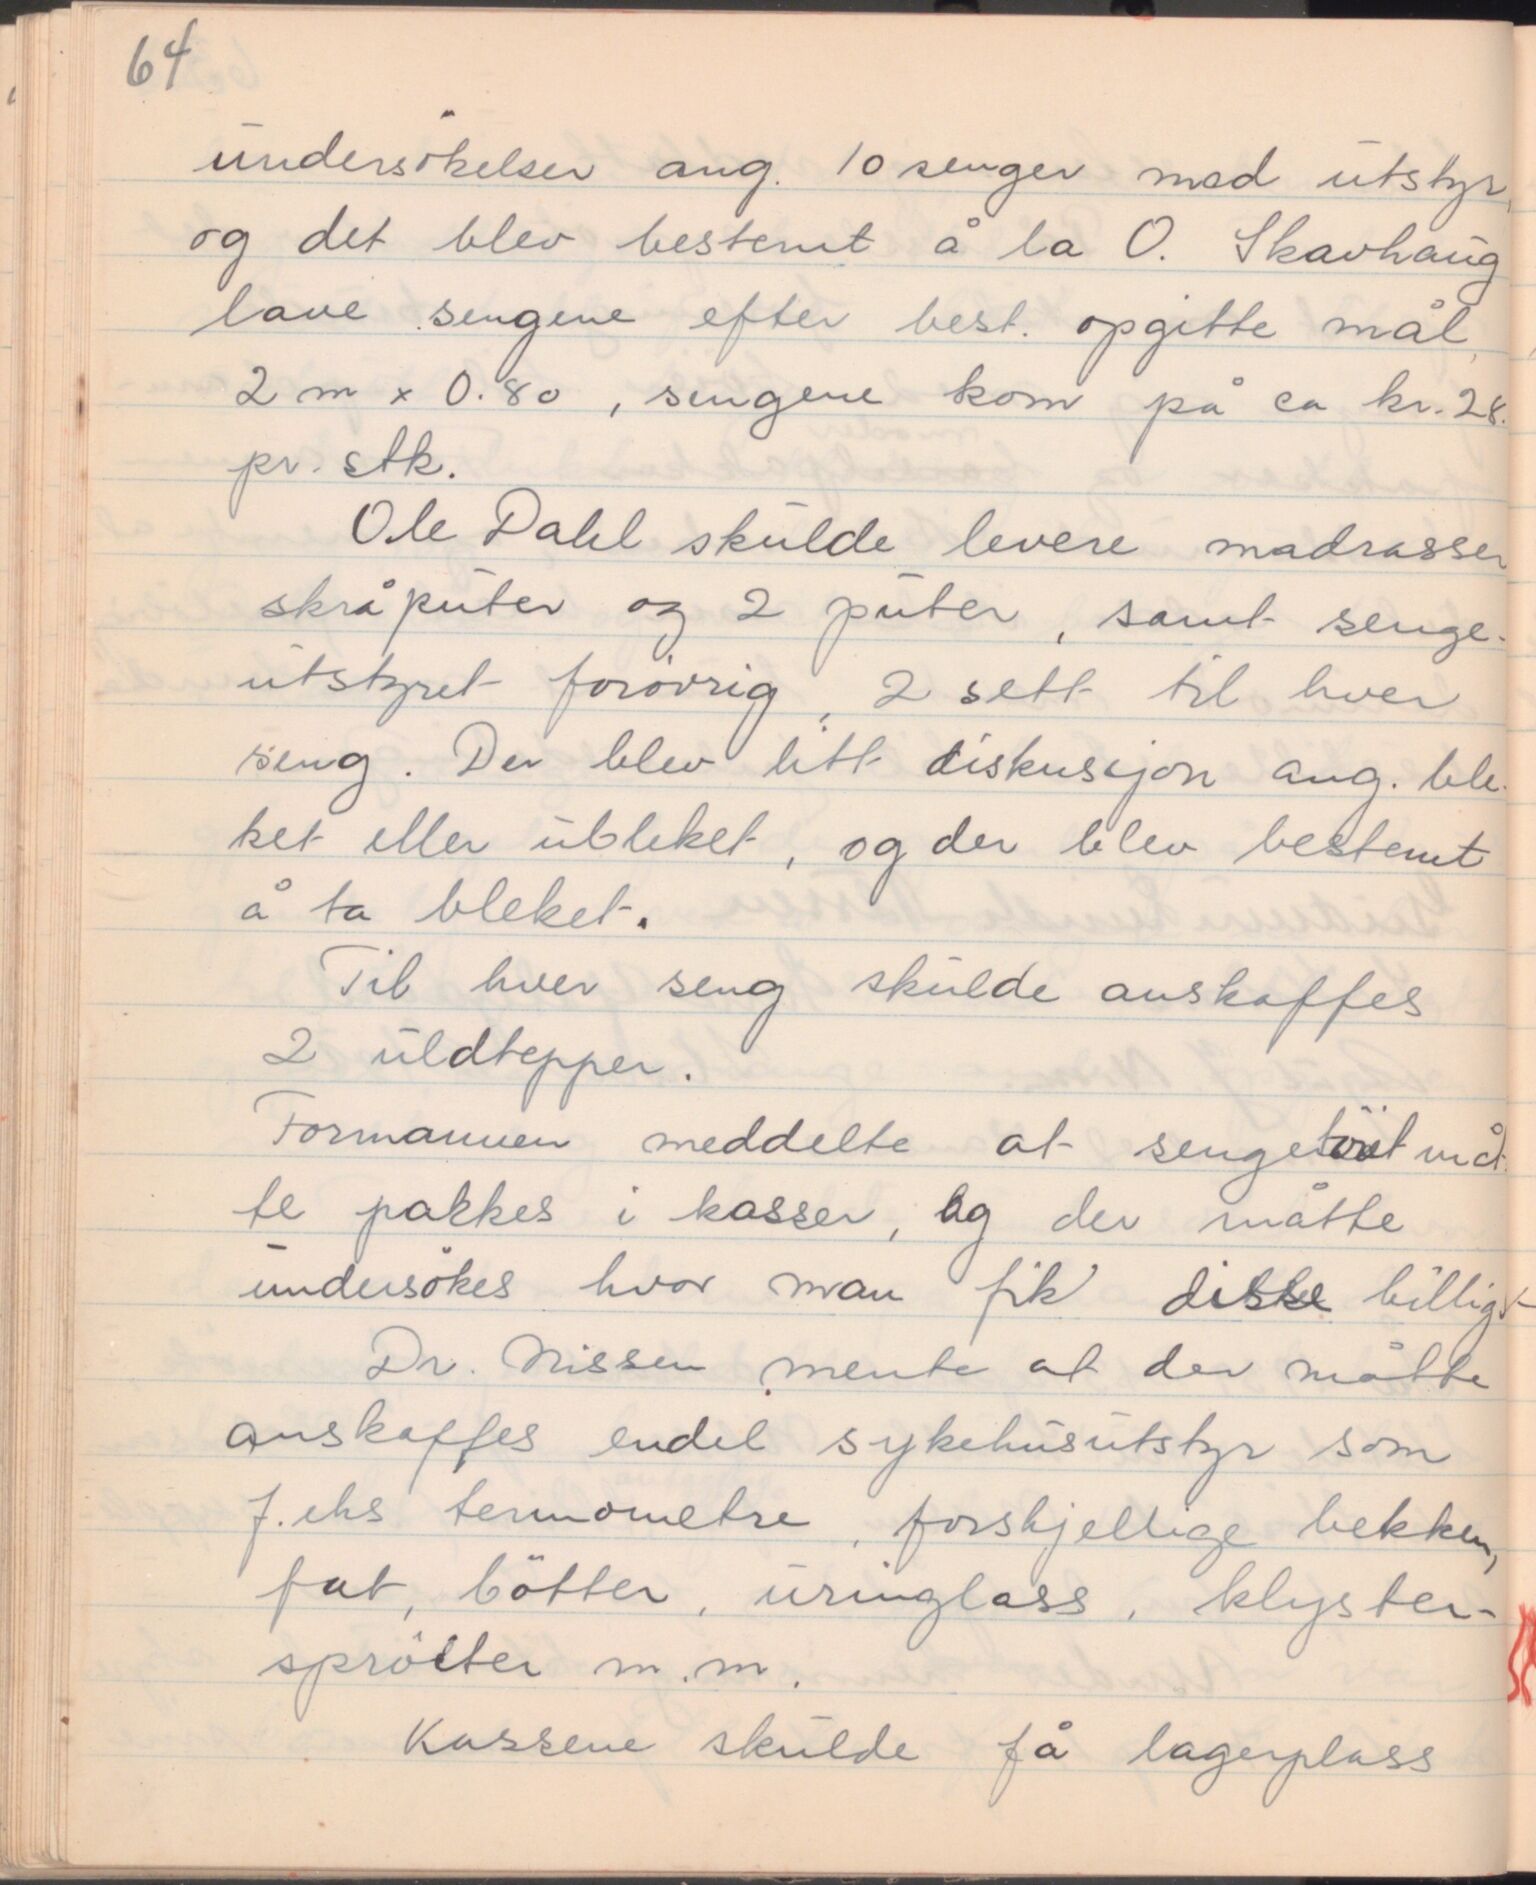 64
undersökelser ang. 10 senger med utstyr,
og det blev bestemt å la O. Skavhaug
lave sengene efter best. opgitte mål,
2 m x 0.80, sengene kom på ca kr. 28.
pr. stk.
Ole Dahl skulde levere madrasser
skråputer og 2 puter, samt senge-
utstyret forövrig, 2 sett til hver
seng. Der blev litt diskusjon ang. ble-
ket eller ubleket, og der blev bestemt
å ta bleket.
Til hver seng skulde anskaffes
2 uldtepper.
Formannen meddelte at sengetöiet måt-
te pakkes i kasser, og der måtte
undersökes hvor man fik disse billigst
Dr. Nissen mente at der måtte
anskaffes endel sykehusutstyr som
f. eks termometre, forskjellige bekken,
fat, bötter, uringlass, klyster-
spröiter m.m.
Kassene skulde få lagerplass